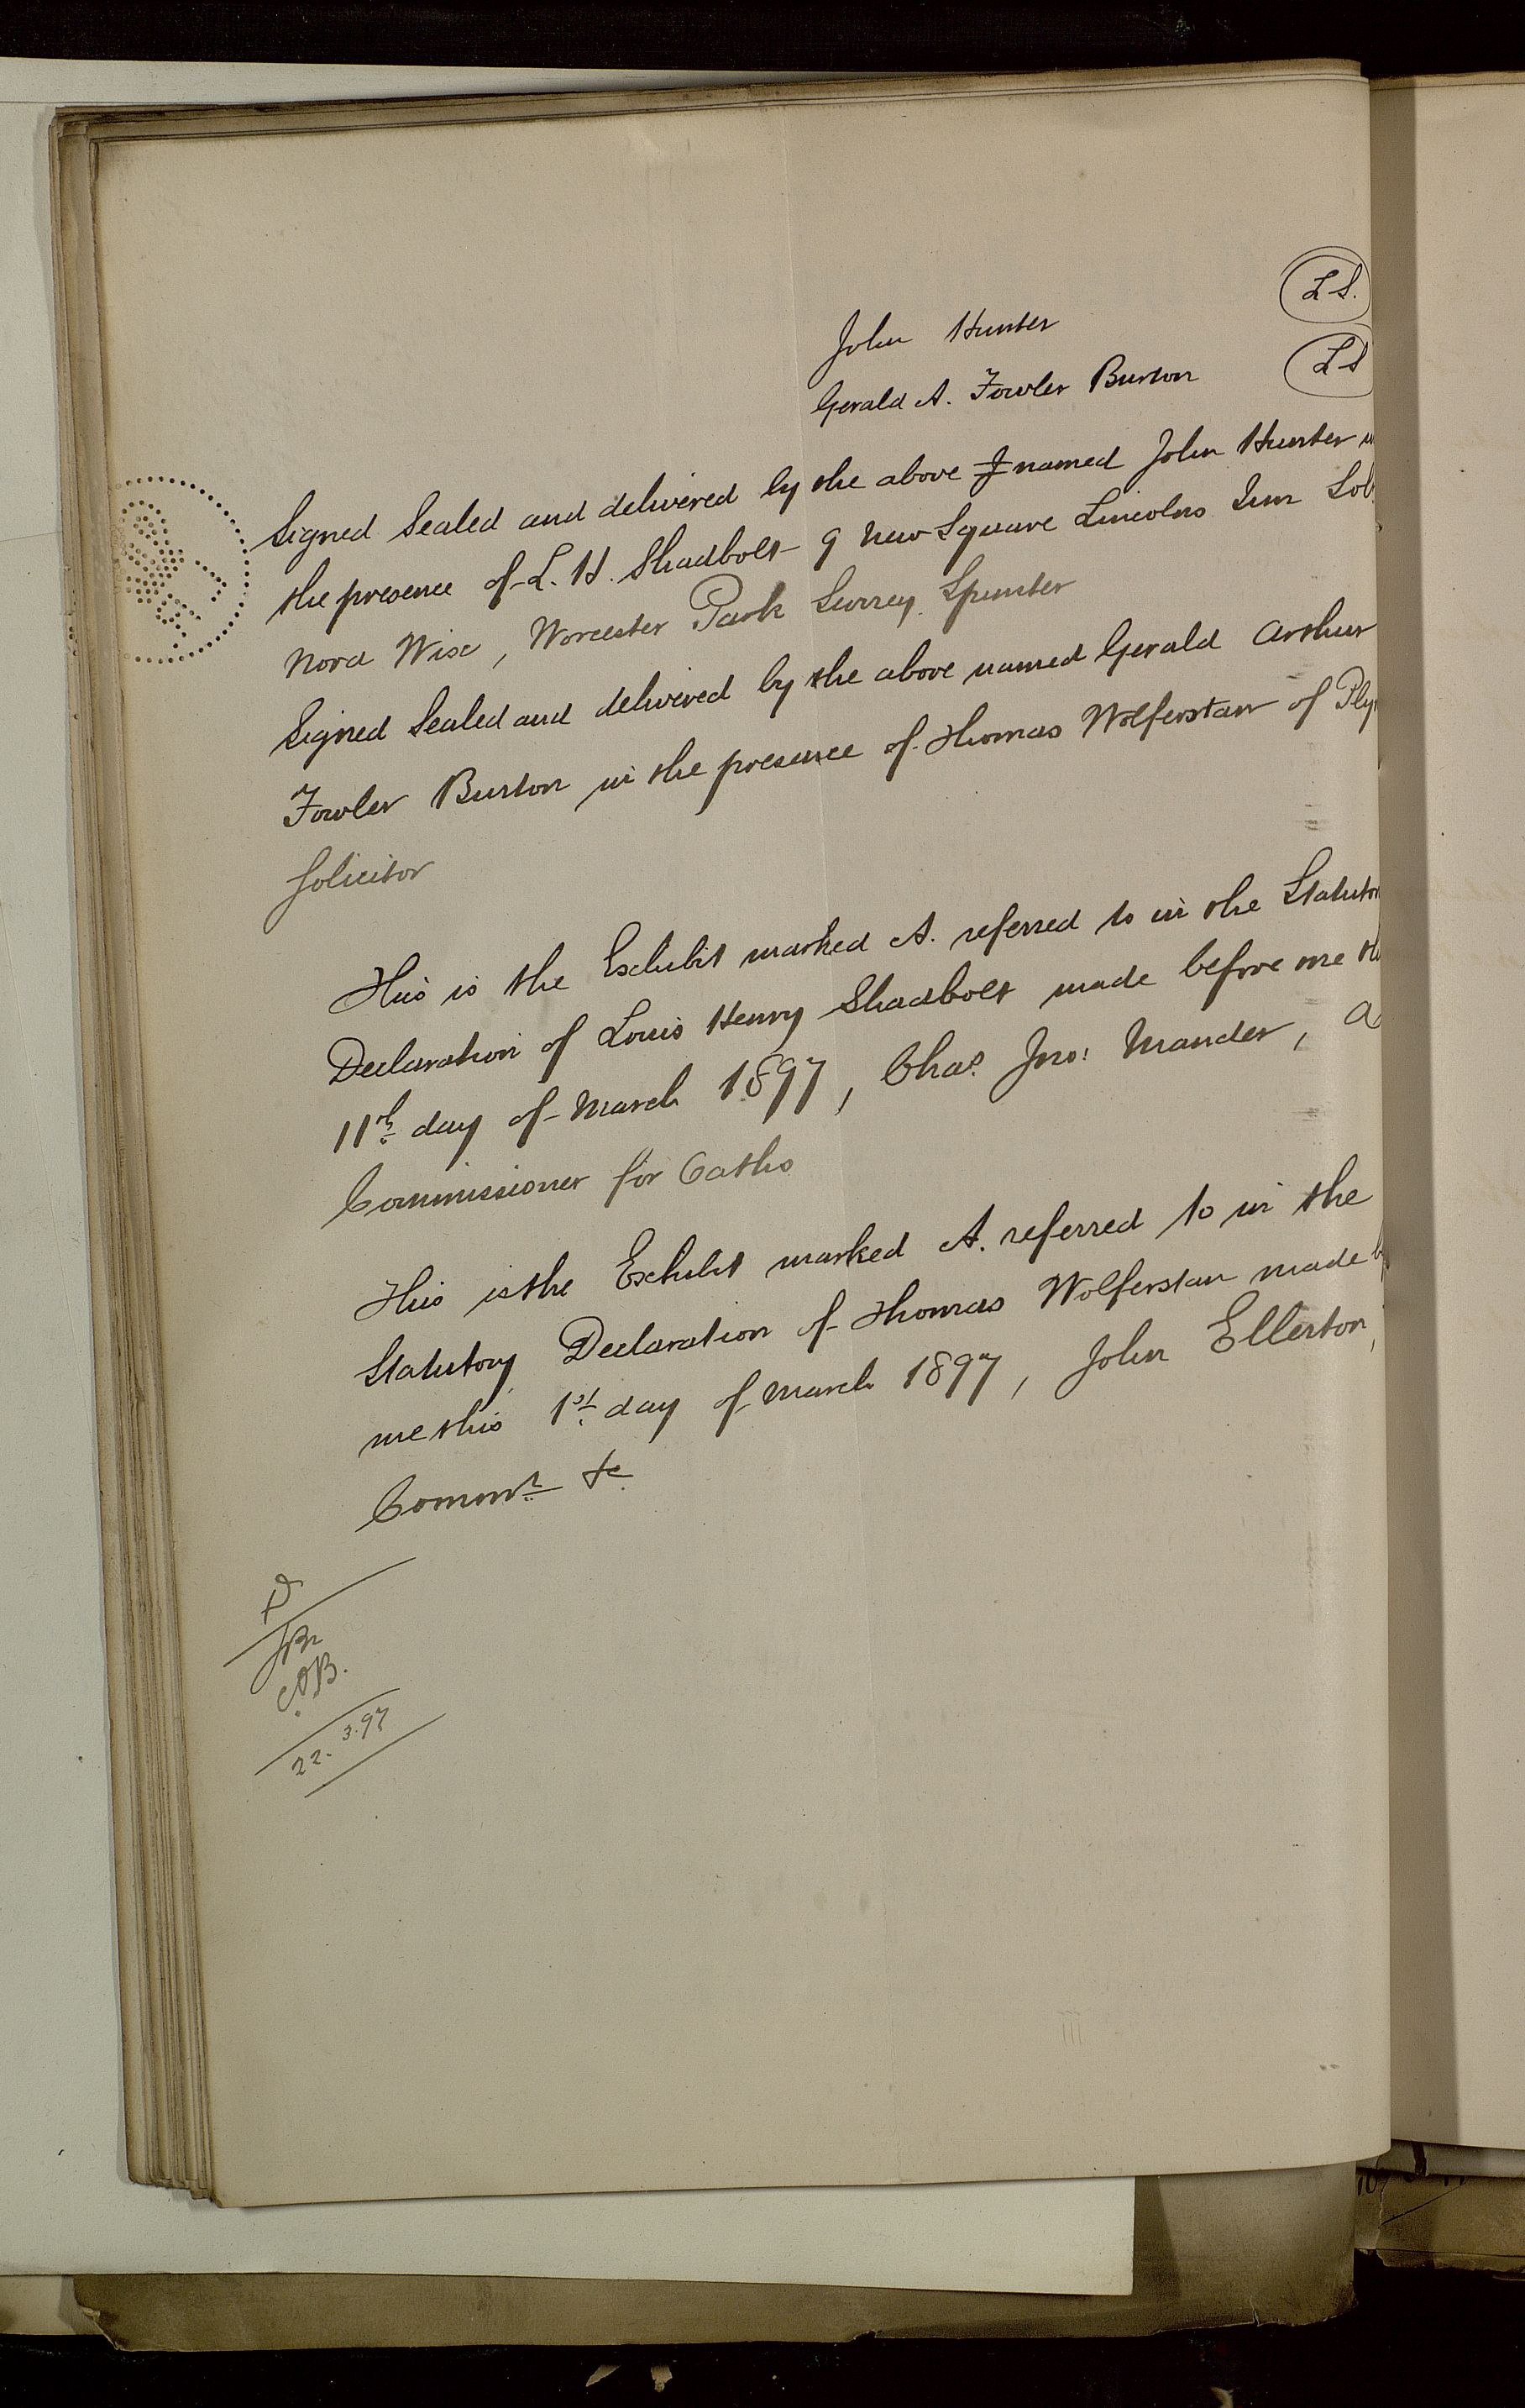 L.S.
John Hunter
L.S
Gerald A. Fowler Burton
Signed Sealed and delivered by the above named John Hunter
the presence of L. H. Shadbolt 9 New Square Lincolns Inn
Nora Wise, Worcester Park Surrey. Spinster
Signed Sealed and delivered by the above named Gerald Arthur
Fowler Burton in the presence of Thomas Wolferstan of
Solicitor
This is the Exhibit marked A. referred to in the
Declaration of Louis Henry Shadbolt made before me
11th day of March 1897, Chas. Jno: Mander, a
Commissioner for Oaths
This is the Exhibit marked A. referred to in the
Statutory Declaration of Thomas Wolferstan made
me this 1st day of March 1897, John Ellerton,
Commr. &c
22. 3.97